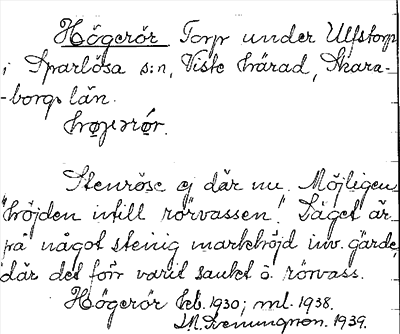 Högerör Torp under Ulfstorp
i Sparlösa s:n, Viste härad, Skara-
-borgs län.
Stenröse ej där nu. Möjligen
"höjden intill rörvassen". Läget är
på något stenig markhöjd inv. gärde,
där det förr varit sankt o. rörvass.
Högerör Leb. 1930; ml. 1938.
1939.